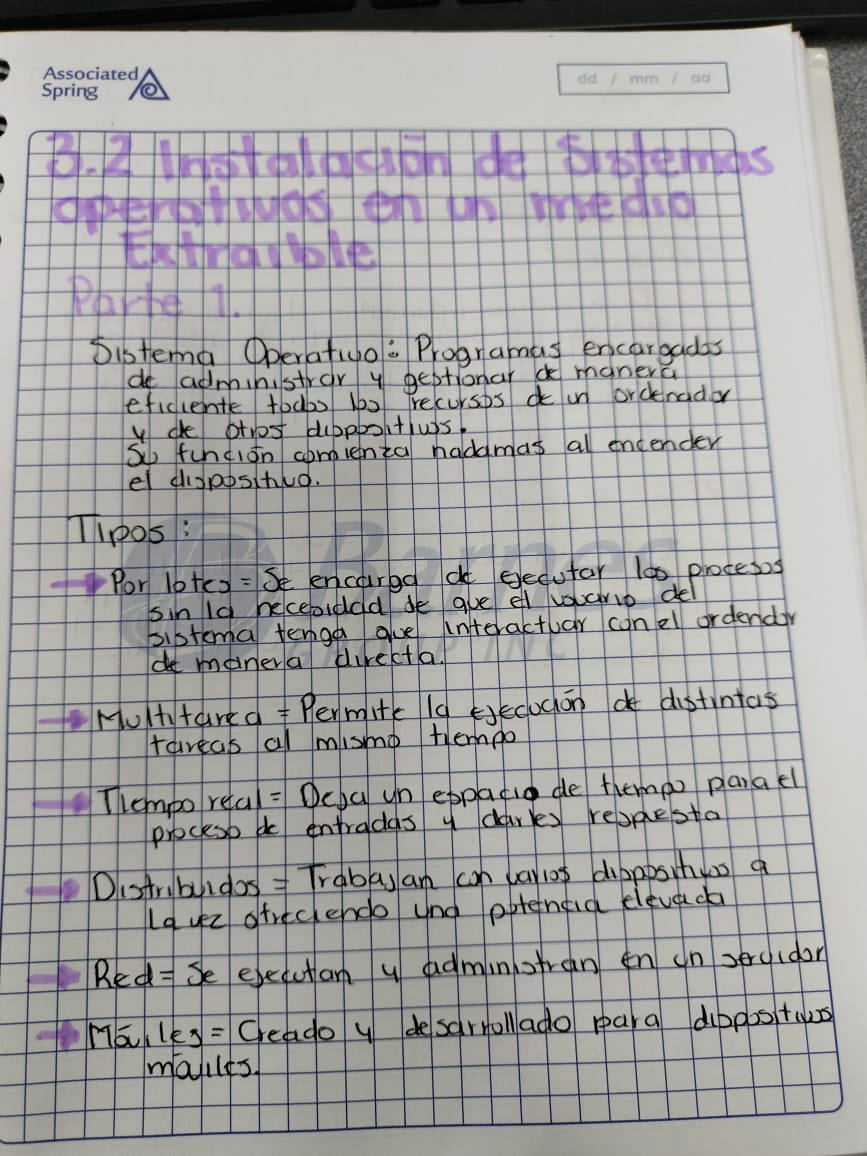 Associated
Spring
dd / mm / aa
3.2 Instalación de Sistemas
operativos en un medio
Extraible
Parte 1.
Sistema Operativo: Programas encargados
de administrar y gestionar de manera
eficiente todos los recursos de un ordenador
y de otros dispositivos.
Su función comienza nadamas al encender
el dispositivo.
Tipos:
Barnes
GROUP INC
Por lotes = Se encarga de ejecutar los procesos
sin la necesidad de que el usuario del
sistema tenga que interactuar con el ordendor
de manera directa.
Multitarea = Permite la ejecución de distintas
tareas al mismo tiempo
Tiempo real = Deja un espacio de tiempo para el
proceso de entradas y darles respuesta
Distribuidos = Trabajan con varios dispositivos a
la vez ofreciendo una potencia elevada
Red = Se ejecutan y administran en un servidor
Móviles = Creado y desarrollado para dispositivos
móviles.